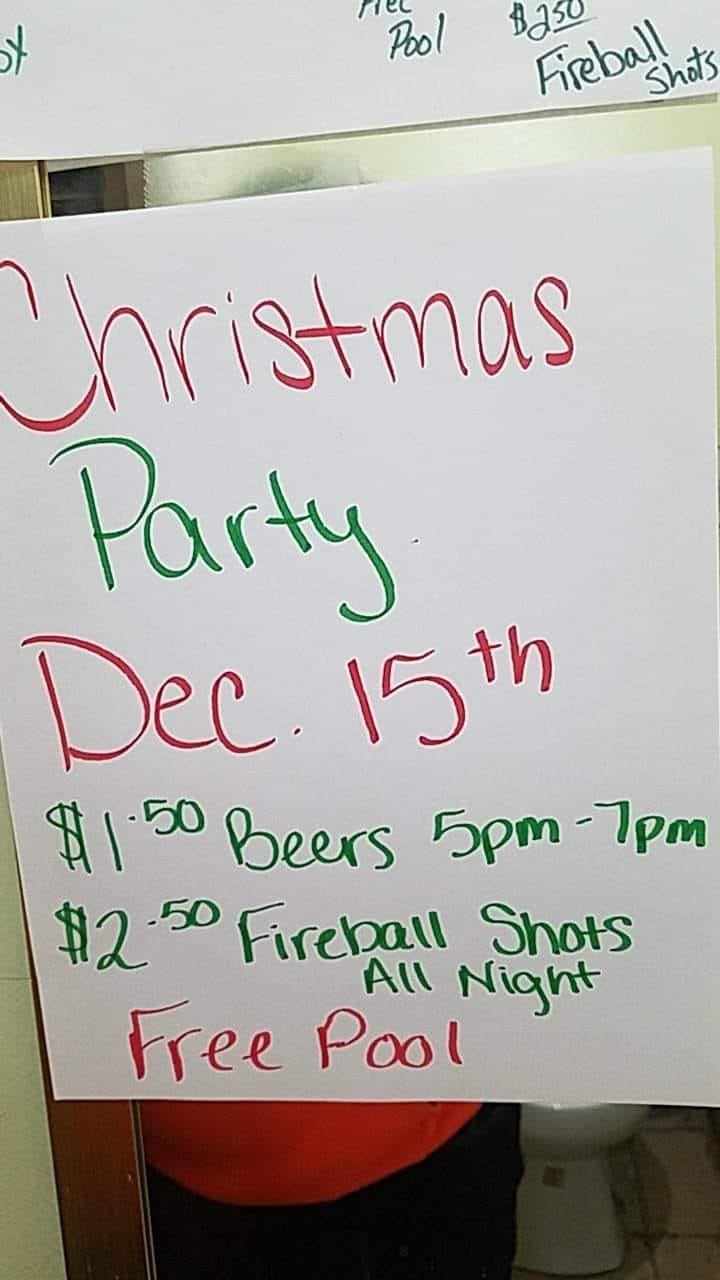 Pool
$2.50
Fireball
Shots
Christmas
Party
Dec. 15th
$1.50 Beers 5pm-7pm
$2.50 Fireball Shots
All Night
Free Pool